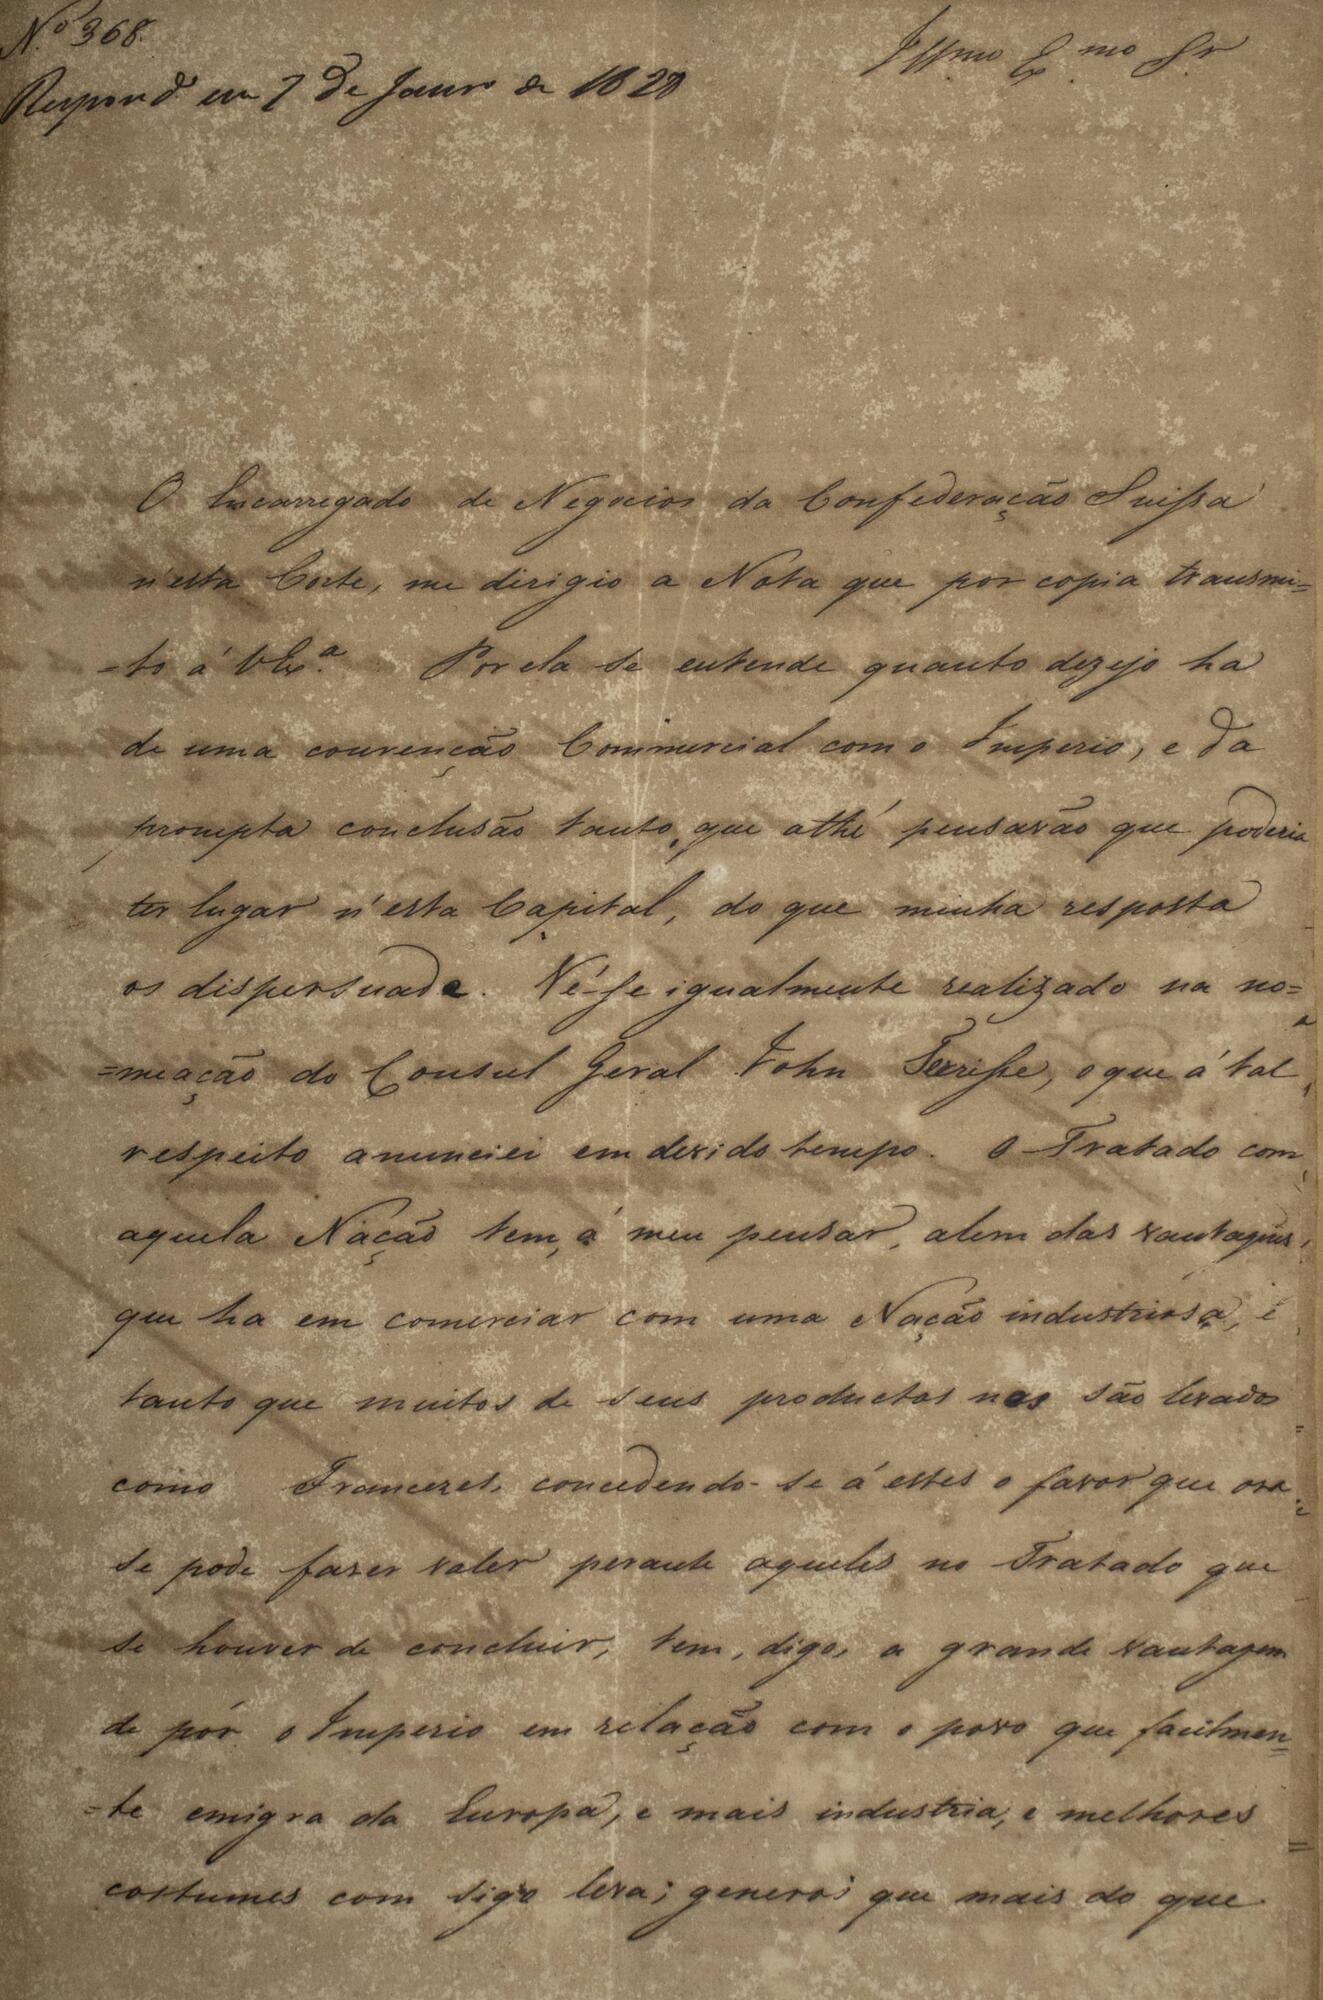 N.º 368.
Respond.º em 7 de Janrº de 1828
Illmo Exmo Sr
O Encarregado de Negocios da Confederação Suissa
n'esta Corte, me dirigio a Nota que por copia transmi=
=to á VEx.ª Por ela se entende quanto dezejo ha
de uma convenção Commercial com o Imperio, e da
prompta conclusão tanto, que athé pensarão que poderia
ter lugar n'esta Capital, do que minha resposta
os dispersuade. Vê-se igualmente realizado na no=
=meação do Consul Geral John, o que á tal
respeito anunciei em devido tempo. O Tratado com
aquela Nação tem, á meu pensar, alem das vantagens,
que ha em comerciar com uma Nação industriosa, é
tanto que muitos de seus productos nos são levados
como Francezes, concedendo-se á estes o favor que ora
se pode fazer valer perante aqueles no Tratado que
se houver de concluir, tem, digo, a grande vantagem
de pór o Imperio em relação com o povo que facilmen=
=te emigra da Europa, e mais industria, e melhores
costumes com sigo leva; genero; que mais do que